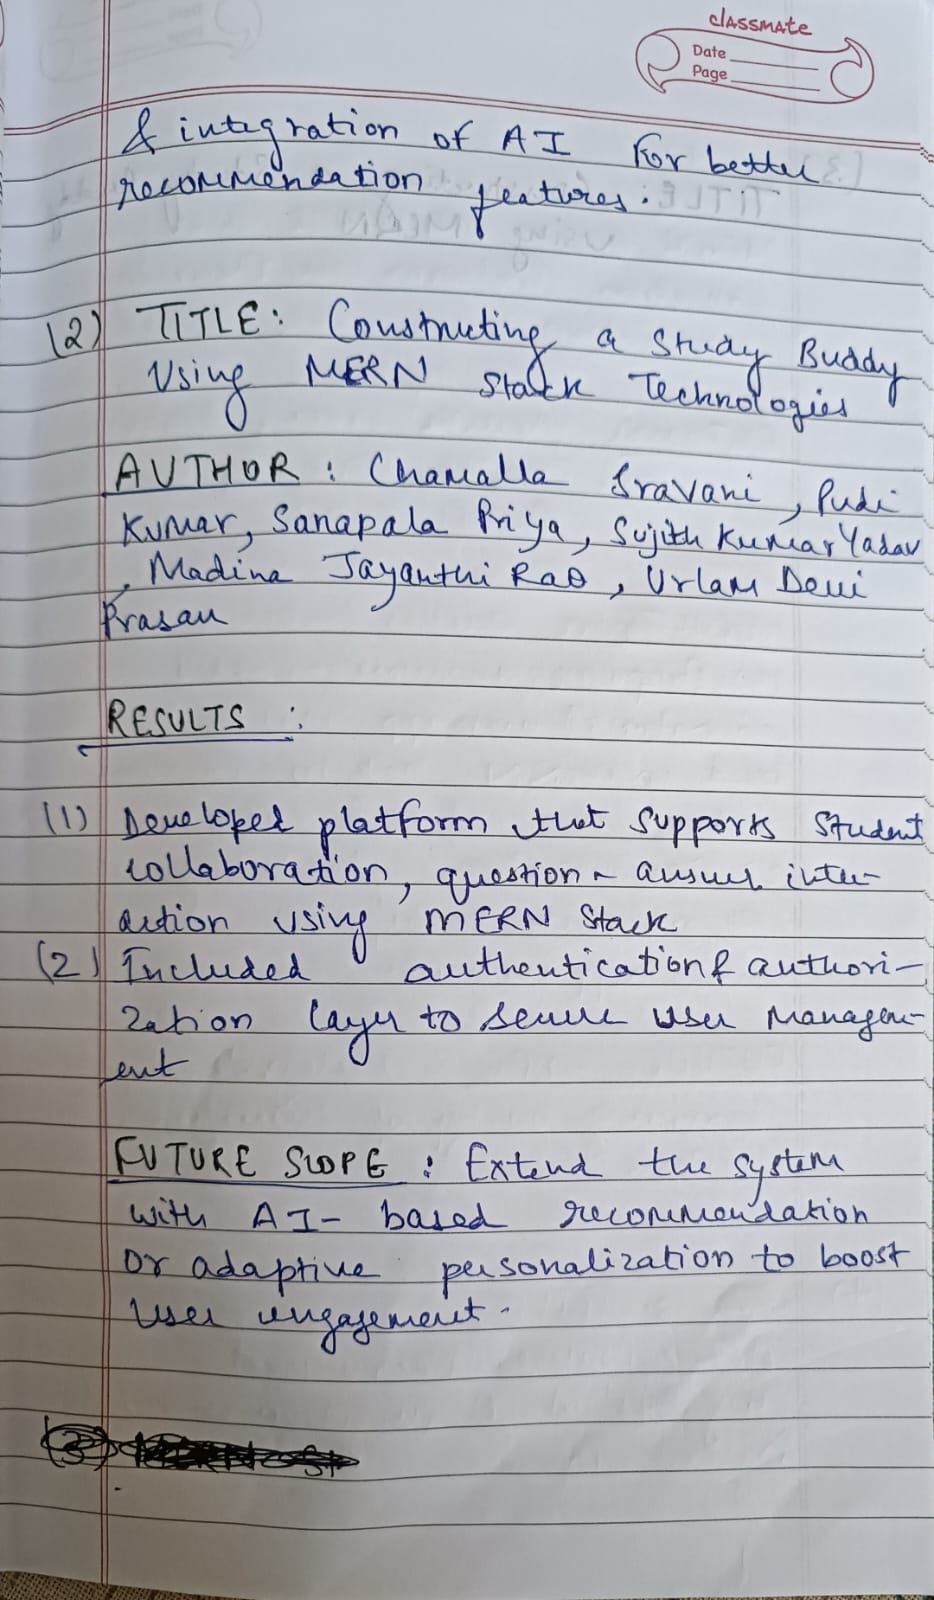 classmate
Date
Page
& integration of AI for better
recommendation features.
(2) TITLE: Constructing a Study Buddy
Using MERN Stack Technologies
AUTHOR : Chamalla Sravani, Pudi
Kumar, Sanapala Priya, Sujith Kumar Yadav
, Madina Jayanthi Rao, Urlam Devi
Prasan
RESULTS :
(1) Developed platform that supports student
collaboration, question - answer inter-
action using MERN Stack
(2) Included authentication & authori-
zation layer to secure user managem-
ent
FUTURE SCOPE : Extend the system
with AI- based recommendation
or adaptive personalization to boost
user engagement.
(3)